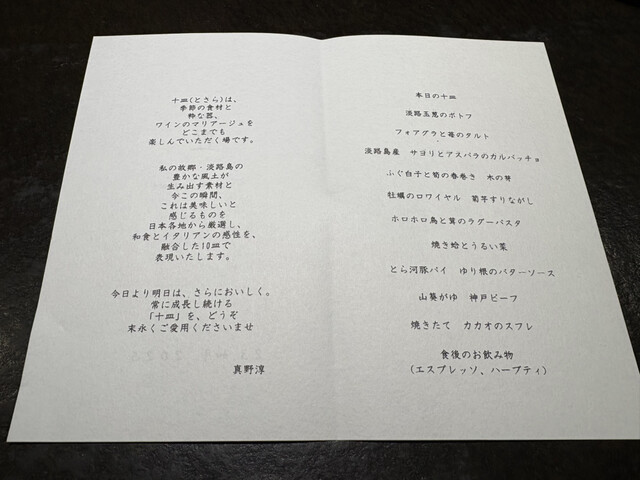 十皿(とさら)は、
季節の食材と
粋な器、
ワインのマリアージュを
どこまでも
楽しんでいただく場です。
私の故郷・淡路島の
豊かな風土が
生み出す素材と
今この瞬間、
これは美味しいと
感じるものを
日本各地から厳選し、
和食とイタリアンの感性を、
融合した10皿で
表現いたします。
今日より明日は、さらにおいしく。
常に成長し続ける
「十皿」を、どうぞ
末永くご愛用くださいませ
真野淳
本日の十皿
淡路玉葱のポトフ
フォアグラと苺のタルト
淡路島産 サヨリとアスパラのカルパッチョ
ふぐ白子と筍の春巻き 木の芽
牡蠣のロワイヤル 菊芋すりながし
ホロホロ鳥と茸のラグーパスタ
焼き蛤とうるい菜
とら河豚パイ ゆり根のバターソース
山葵がゆ 神戸ビーフ
焼きたて カカオのスフレ
食後のお飲み物
(エスプレッソ、ハーブティ)